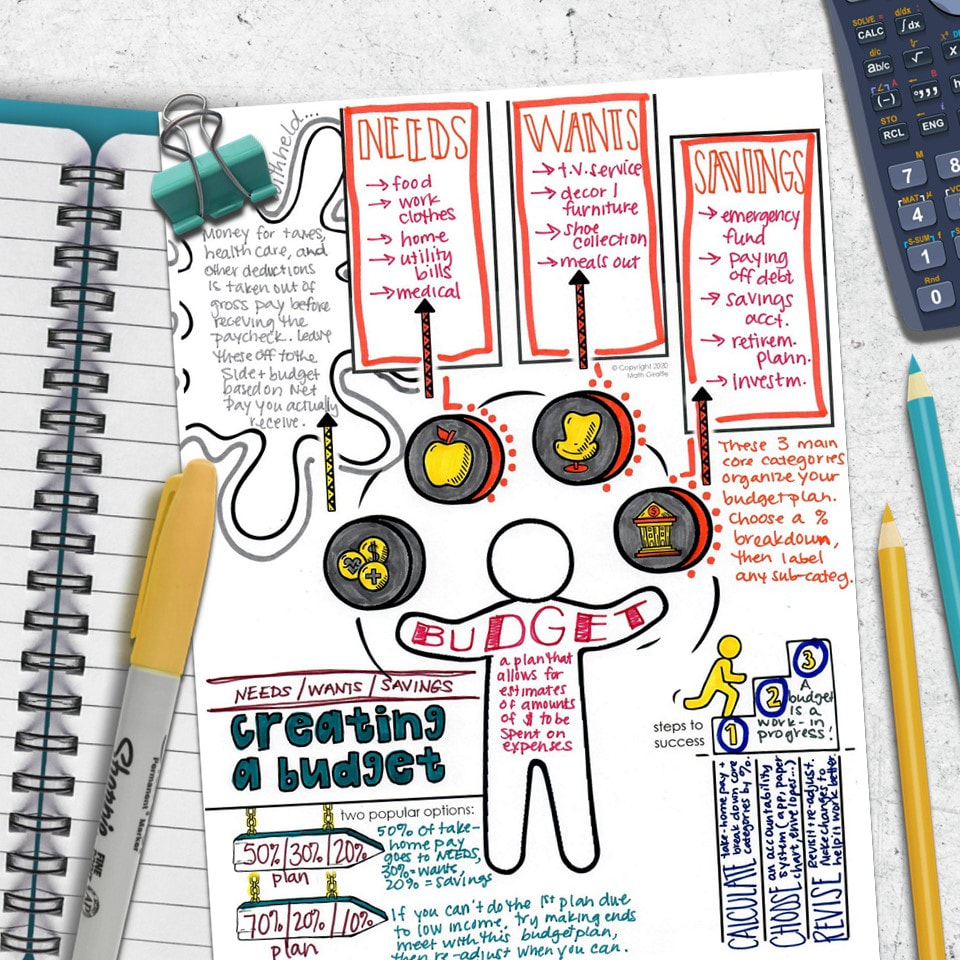 withheld...
Money for taxes,
health care, and
other deductions
is taken out of
gross pay before
receving the
paycheck. Leave
these off to the
side + budget
based on Net
Pay you actually
receive.
NEEDS
→ food
→ work
clothes
→ home
→ utility
bills
→ medical
WANTS
→ t.v. service
→ decor /
furniture
→ shoe
collection
→ meals out
© Copyright 2020
Math Giraffe
SAVINGS
→ emergency
fund
→ paying
off debt
→ savings
acct.
→ retirem.
plann.
→ investm.
These 3 main
core categories
organize your
budget plan.
Choose a %
breakdown,
then label
any sub-categ.
$
$
+
BUDGET
a plan that
allows for
estimates
of amounts
of $ to be
spent on
expenses
NEEDS / WANTS / SAVINGS
creating
a budget
two popular options:
50% | 30% | 20%
plan
50% of take-
home pay
goes to NEEDS,
30% = wants,
20% = savings
70% | 20% | 10%
plan
If you can't do the 1st plan due
to low income, try making ends
meet with this budget plan,
then re-adjust when you can.
steps to
success
1
2
3
A
budget
is a
work-in
progress!!
CALCULATE take-home pay +
break down core
categories by %.
CHOOSE an accountability
system (app, paper
chart, envelopes...)
REVISE Revisit + re-adjust.
Make changes to
help it work better.
Sharpie
Permanent Marker
FINE
SOLVE =
CALC
∫dx
d/c
ab/c
√
(-)
STO
RCL
ENG
M
7
8
MAT
4
S-SUM
1
Rnd
0